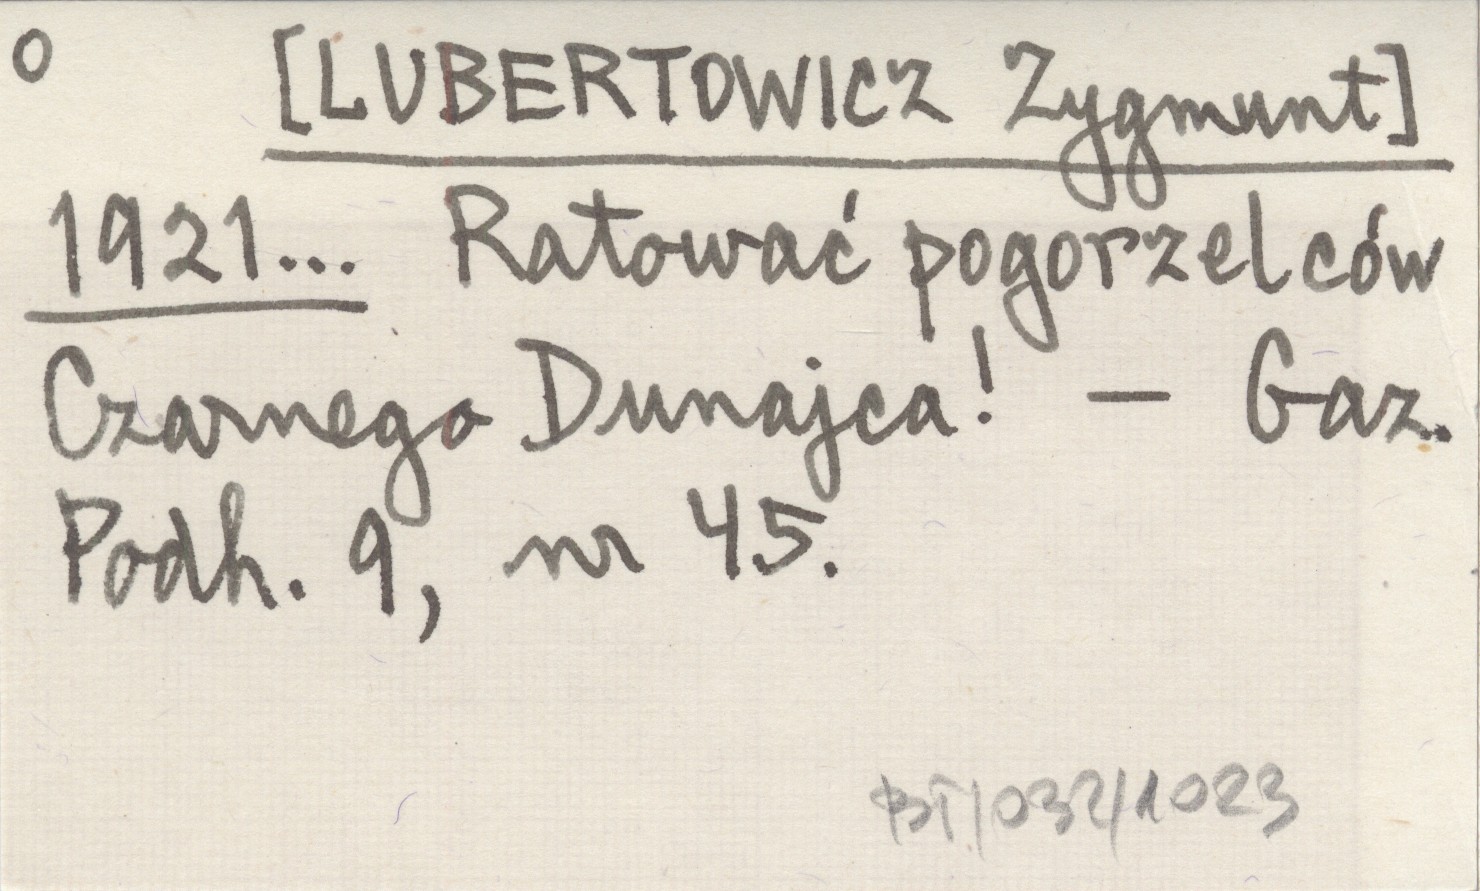 o [LUBERTOWICZ Zygmunt]
1921... Ratować pogorzelców
Czarnego Dunajca! — Gaz.
Podh. 9, nr 45.
BT/032/1023